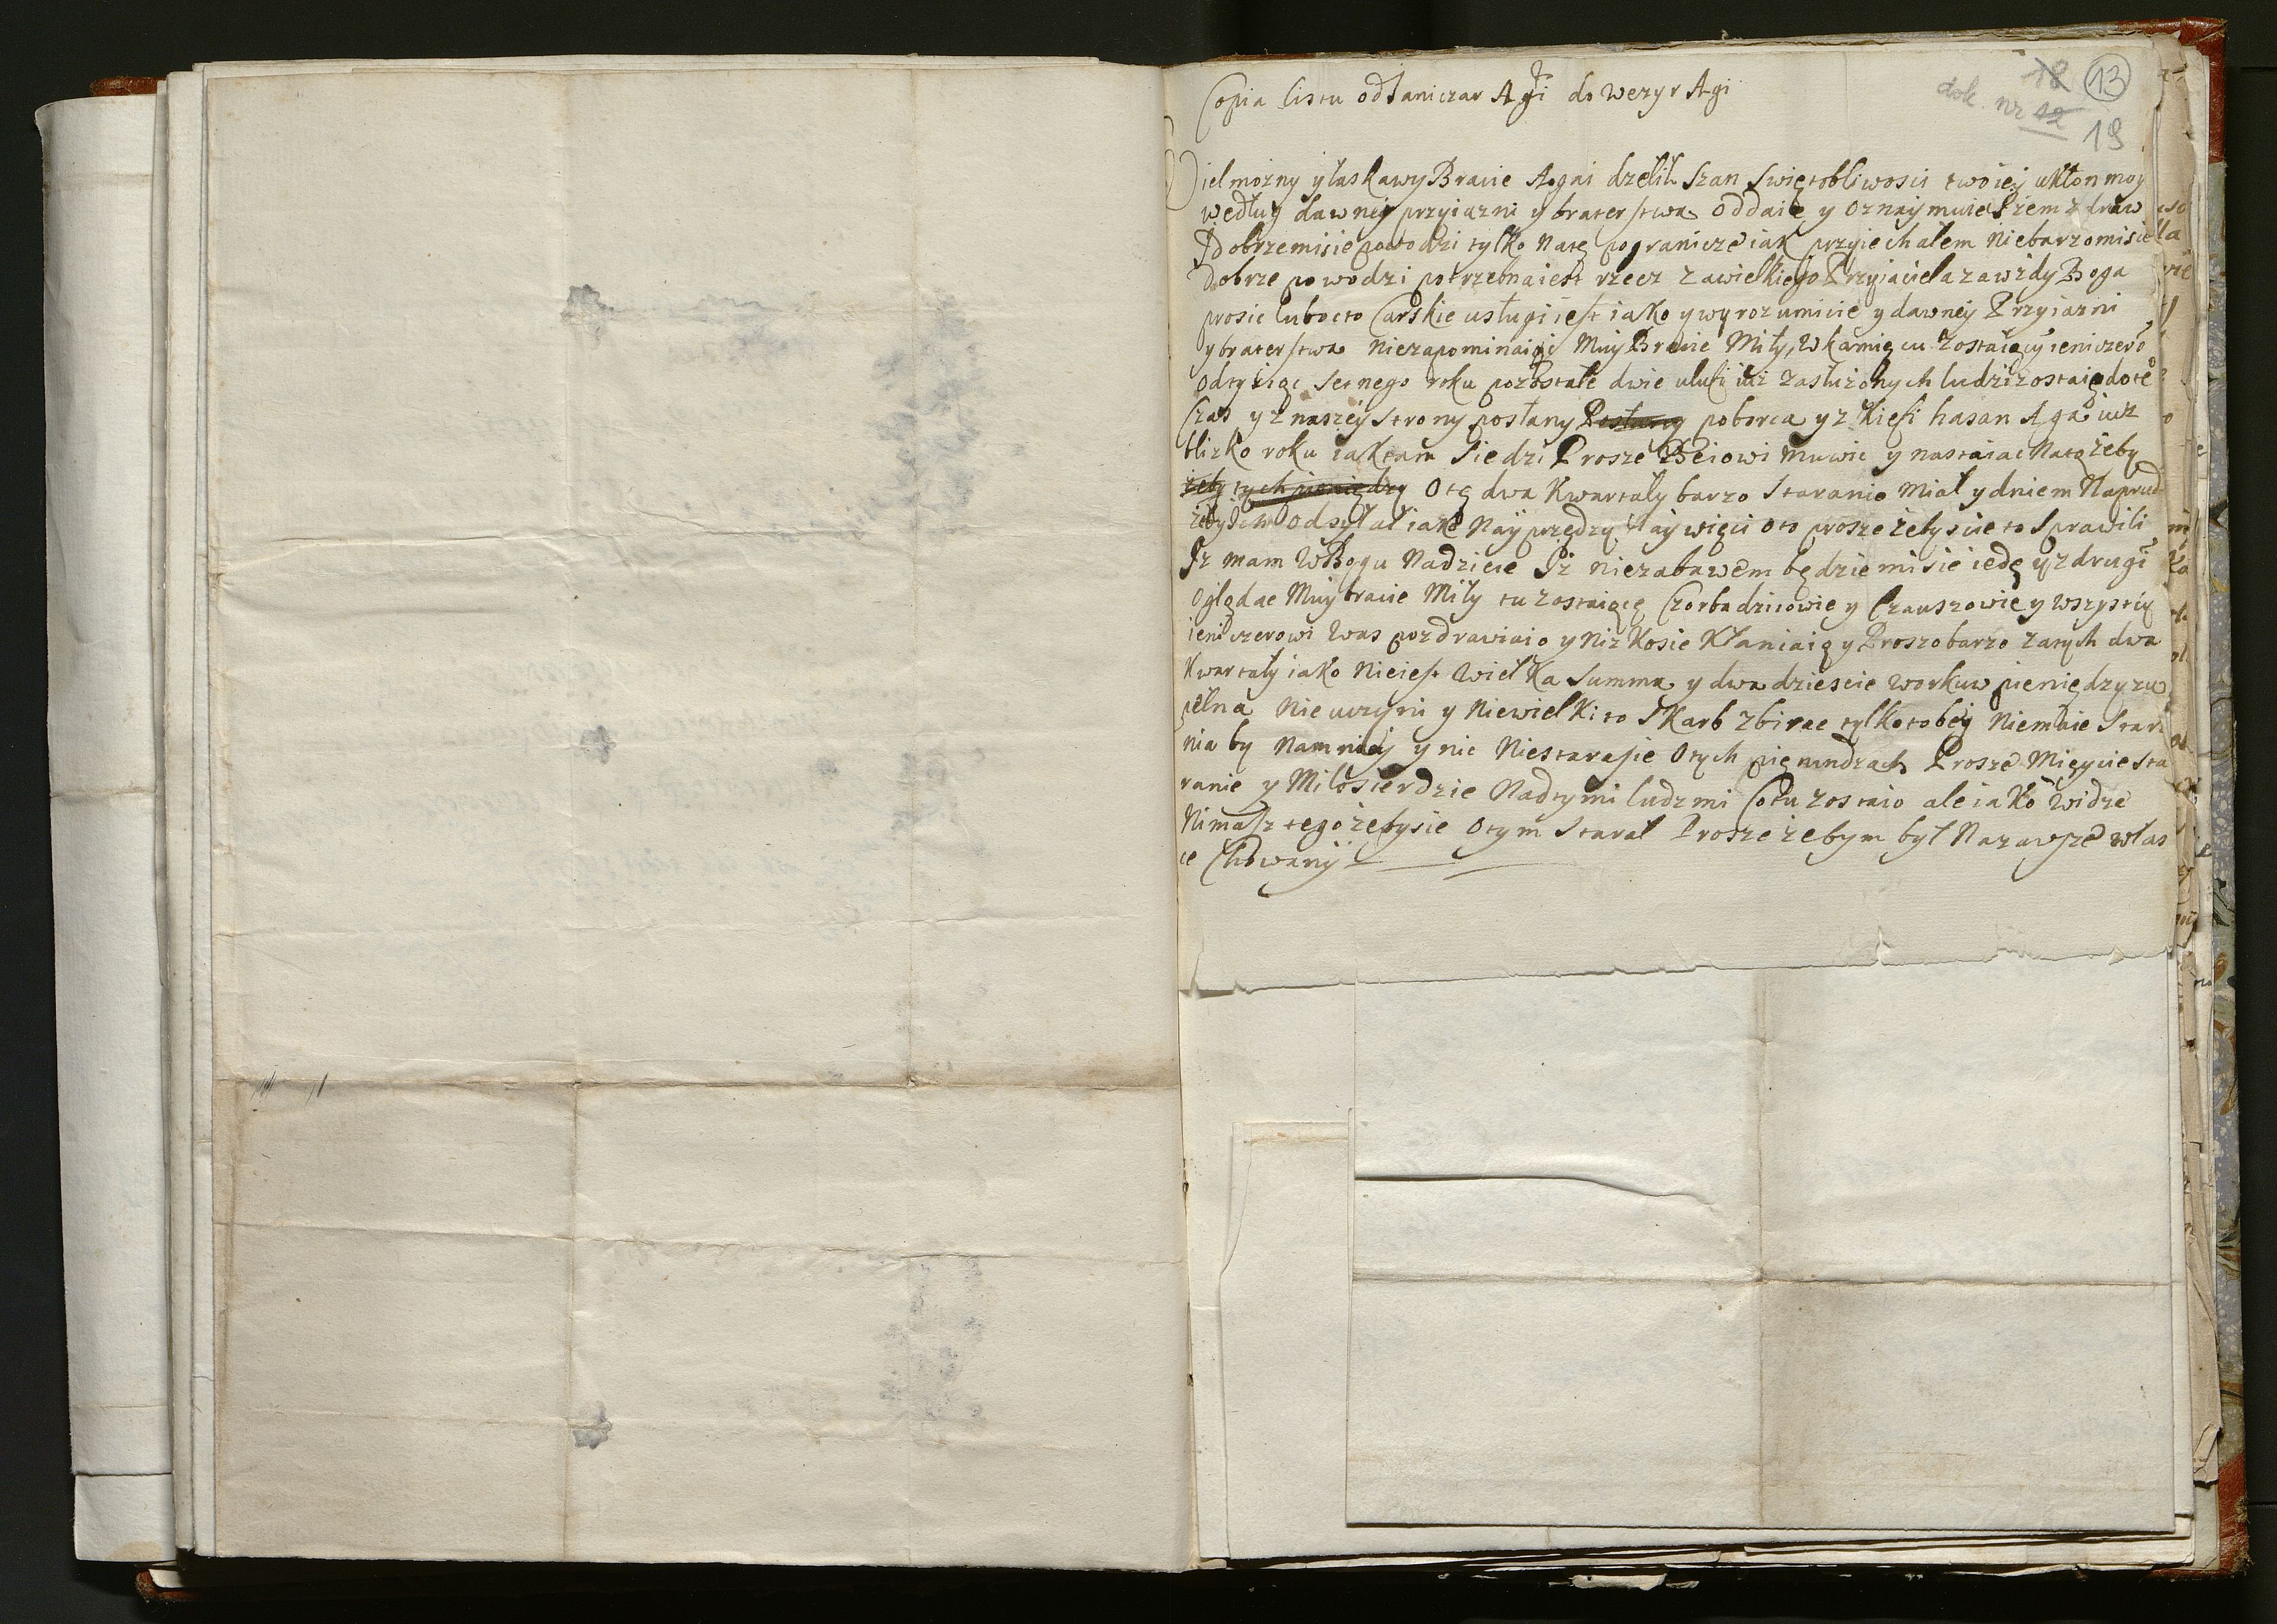 Copia listu od Janiczar Agi do Wezyr Agi
18 13
dok. nr 12
19
Wielmożny y łaskawy Bracie Agai dzelil Szan Swiętobliwosci twoiey ukłon moy
według dawney przyiazni y braterstwa oddaię y oznaymuie Iżem zdraw
I dobrze misie powodzi tylko natę pogranicze iak przyiechałem Niebarzo misie
dobrze powodzi potrzebna iest rzecz za wielkiego Przyiaciela zawżdy Boga
prosic lubo to Carskie usługi iest iako y wyrozumicie y dawney Przyiazni
y braterstwa niezapominaiąc Muy Bracie Miły, W kamięcu zostaięcy ieniczero
od tysięc setnego roku pozostałe dwie ulufi iuż zasłużonych ludzi zostaią do te
Czas y z naszey strony posłany Posłany poborca y z Kiefi hasan Aga iuż
blizko roku iak tam siedzi Prosze Beiowi muwic y nastaiac na to żeby
żeby tych pieniędzy Otę dwa Kwartały barzo staranie Miał y dniem Naprud
żeby Im odsyłał iako Nayprzędzy Naywięci oto prosze żebyscie to sprawili
Iż mam w Bogu Nadzieie Iż niezabawem będziemisie ieden z drugi
Oglądac Muy bracie Miły tu zostaięcę Czorbadziowie y Czauszowie y wszystcy
ieniczerowi Was pozdrawiaio y Nizkosie Kłaniaią y Proszo barzo za tych dwa
Kwartały iako Nieiest Wielka Summa y dwadziescie workuw pieniędzy zu
pełna nie uczyni y Niewielki to Skarb zbirac tylko tobey Niemacie Stara
nia by namniey y nic Niestarasie Otych pięnundzach Prosze Mięycie sta
ranie y Miłosierdzie Nadtymi ludzmi Co tu zostaio ale iako widze
Nimasz tego żebysie Otym Starał Prosze żebym był Nazawsze w łas
ce Chowany